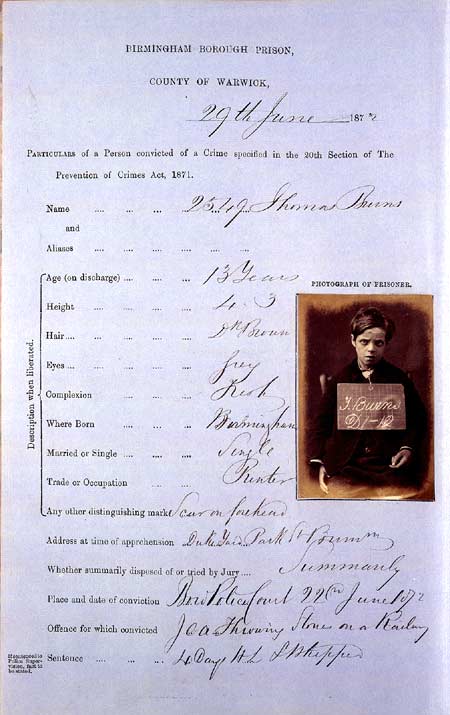 BIRMINGHAM BOROUGH PRISON,
COUNTY OF WARWICK,
29th June 1872
PARTICULARS of a Person convicted of a Crime specified in the 20th Section of The
Prevention of Crimes Act, 1871.
Name .... .... ... 2549 Thomas Burns
and
Aliases .... .... ... .... ....
Description when liberated.
Age (on discharge) .... ... ... 13 Years
Height .... ... ... 4. 3
Hair .... ... ... Dk Brown
Eyes .... ... ... Grey
Complexion ... ... Fresh
Where Born ... ... Birmingham
Married or Single .... .... Single
Trade or Occupation ... ... Printer
Any other distinguishing mark Scar on forehead
PHOTOGRAPH OF PRISONER.
T. Burns
Address at time of apprehension Duke Park St
Whether summarily disposed of or tried by Jury .... Summarily
Place and date of conviction Boro Police Court 22nd June 1872
Offence for which convicted Throwing Stones on a Railway
If sentenced to
Police Super-
vision, fact to
be stated.
Sentence .... ... ... 4 Days H L & Whipped